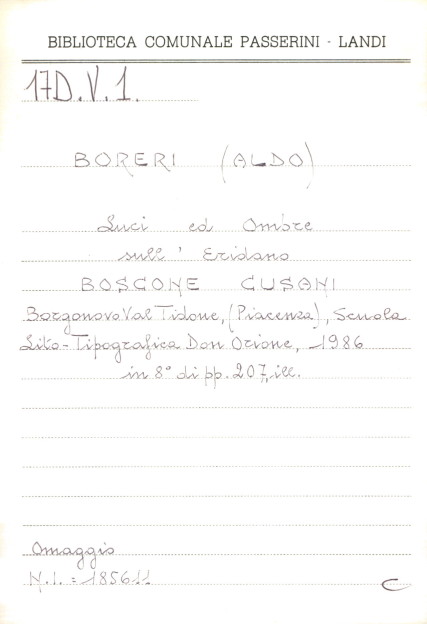 BIBLIOTECA COMUNALE PASSERINI - LANDI
17D.V.1.
BORERI (ALDO)
Luci ed Ombre
sull' Eridano
BOSCONE CUSANI
Borgonovo Val Tidone, (Piacenza), Scuola
Lito-Tipografica Don Orione, 1986
in 8° di pp. 207, ill.
Omaggio
N.I. = 185611
C